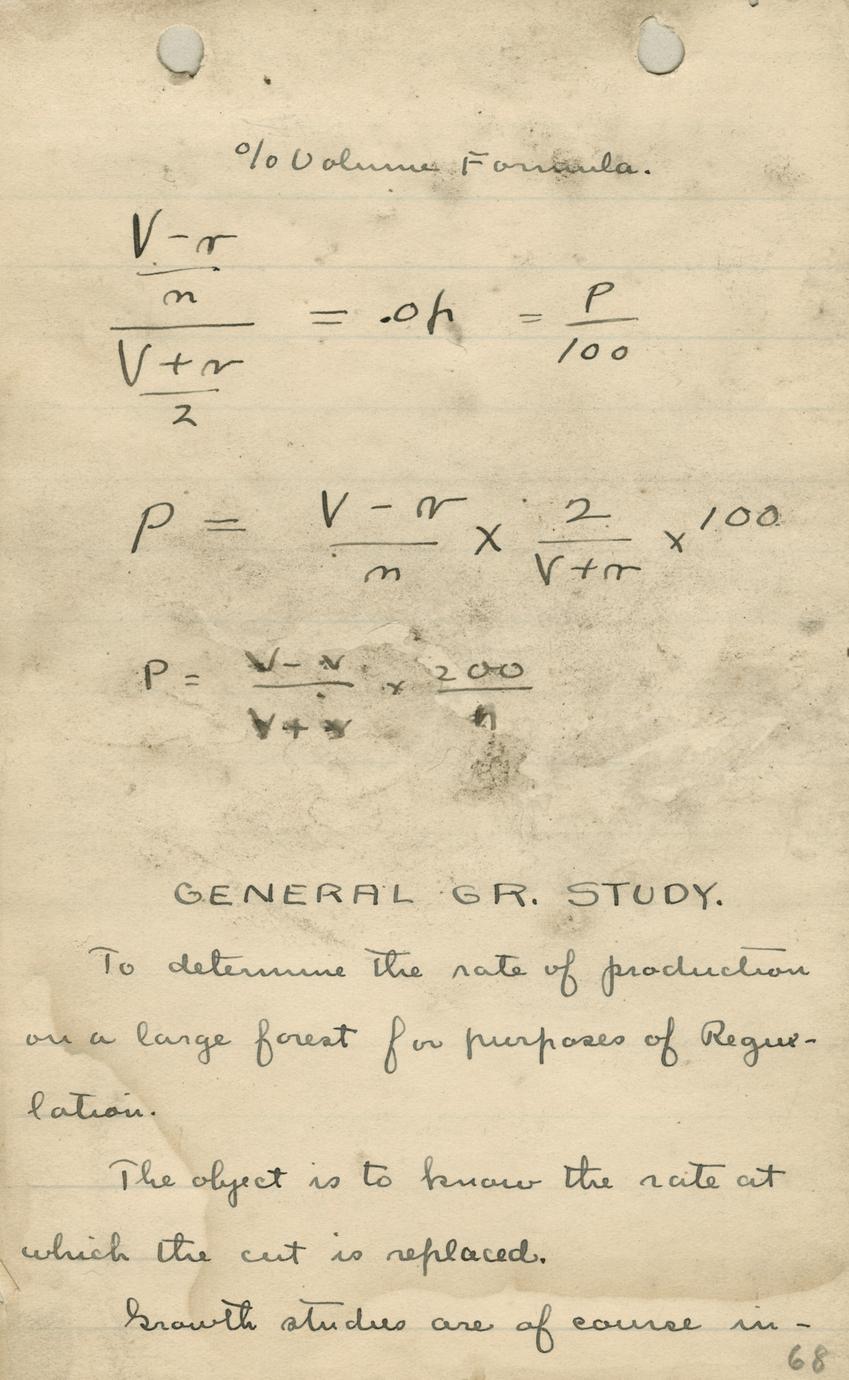 % Volume Formula.
V - v
n
V + v
2
= .0p = P
100
P = V - v
n
x 2
V + v
x 100
P = V - v
V + v
x 200
n
GENERAL GR. STUDY.
To determine the rate of production
on a large forest for purposes of Regu-
lation.
The object is to know the rate at
which the cut is replaced.
Growth studies are of course in-
68